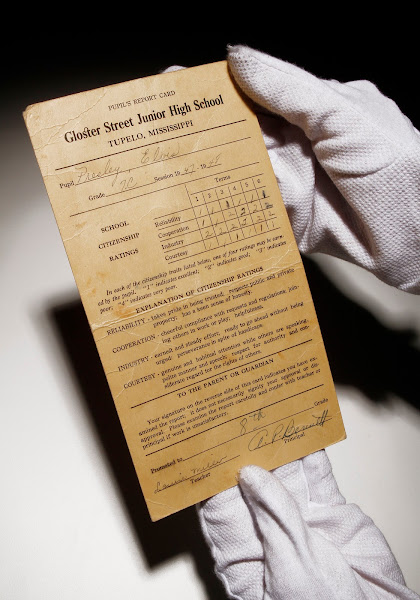 PUPIL'S REPORT CARD
Gloster Street Junior High School
TUPELO, MISSISSIPPI
Pupil Presley Elvis
Grade 7C Session 1947-1948
Terms
1 2 3 4 5 6
SCHOOL
CITIZENSHIP
RATINGS
Reliability
Cooperation
Industry
Courtesy
In each of the citizenship traits listed below, one of four ratings may be earn-
ed by the pupil. "1" indicates excellent; "2" good; "3" indicates
"4" indicates very poor.
EXPLANATION OF CITIZENSHIP RATINGS
RELIABILITY - takes pride in being trusted, respects public and private
property; has a keen sense of honesty.
COOPERATION - cheerful compliance with requests and regulations; join-
ing others in work or play; helpfulness.
INDUSTRY - earnest and steady effort; ready to go ahead without being
urged; perseverance in spite of failure.
COURTESY - genuine and habitual attention while others are speaking,
polite manner and speech, respect for authority and con-
siderate regard for the rights of others.
TO THE PARENT OR GUARDIAN
Your signature on the reverse side of this card indicates you have ex-
amined the report; it does not necessarily signify your approval or dis-
approval. Please examine the report carefully and confer with teacher or
principal if work is unsatisfactory.
Promoted to 8th Grade
Teacher
Principal